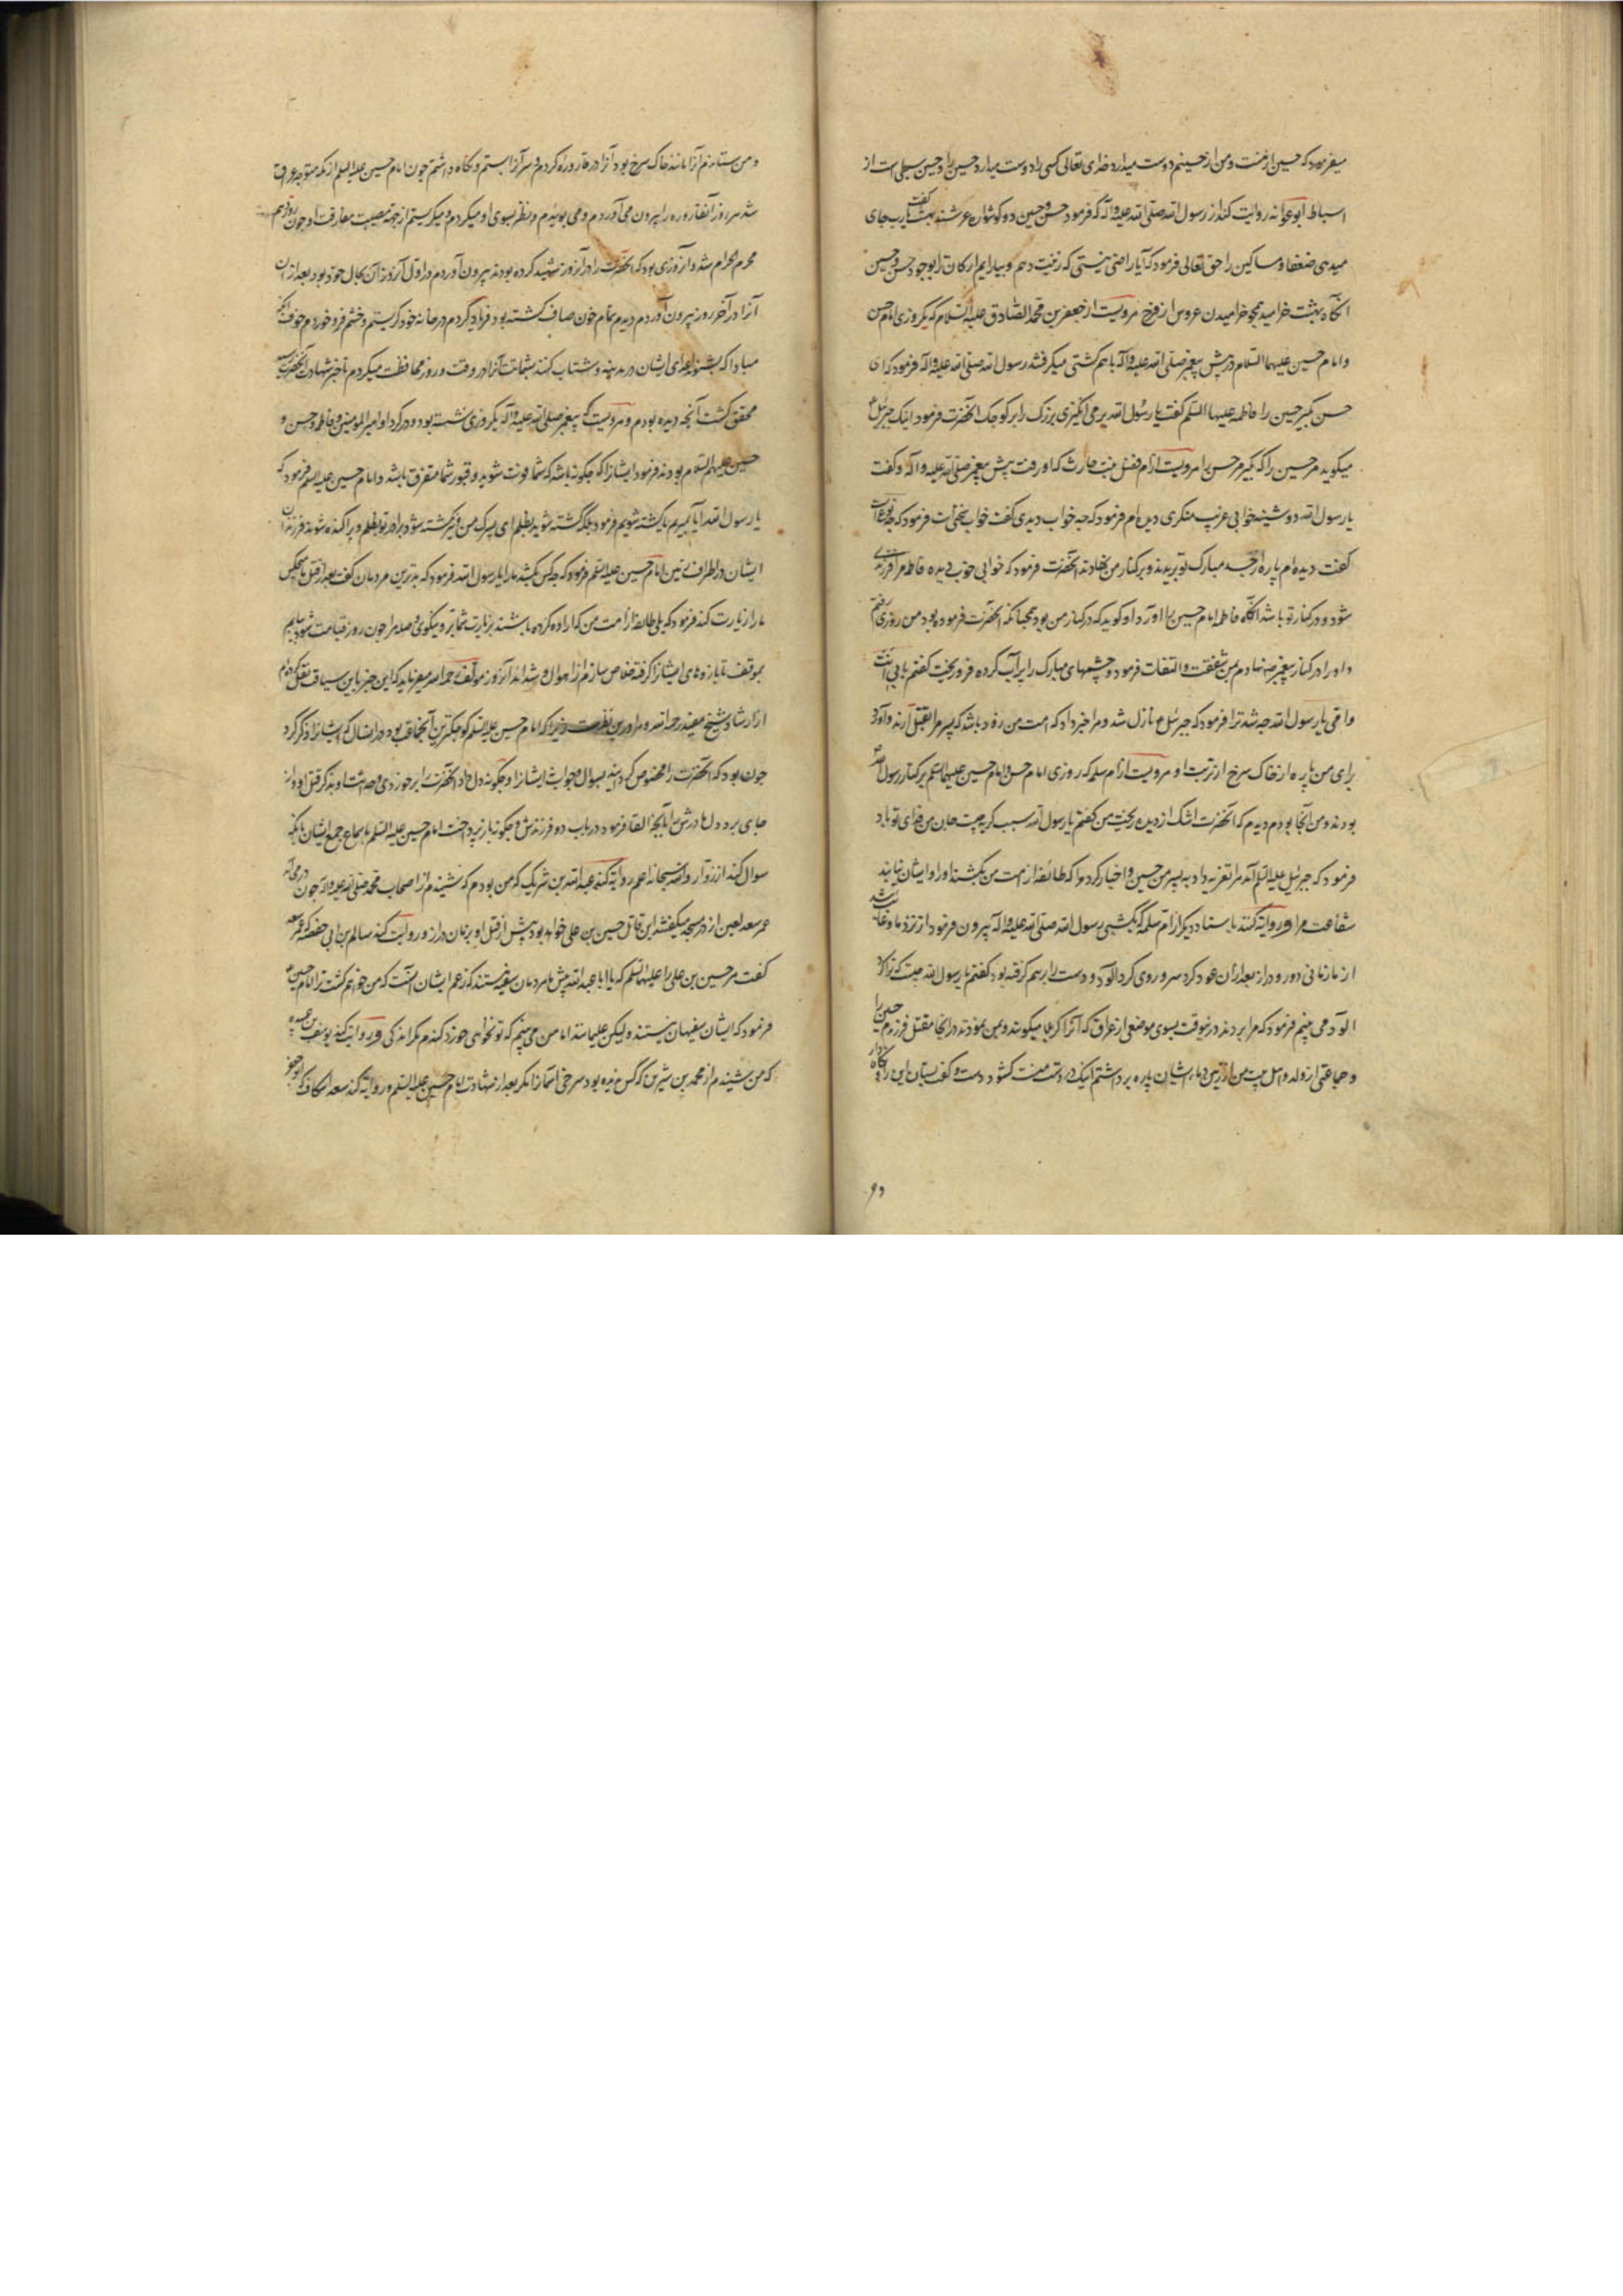 میفرمود که حسین از منست و من از حسینم دوست میدارد خدای تعالی کسی را که دوست میدارد حسین را و حسین سبطی است از
اسباط ابو عوانه روایت کند از رسول الله صلی الله علیه و آله که فرمود حسن و حسین دو گوشوار عرشند بهشت گفت یارب جای
میدهی ضعفا و مساکین را حق تعالی فرمود که آیا راضی نیستی که زینت دهم و بیارایم ارکان ترا بوجود حسن و حسین
انگاه بهشت خرامید همچو خرامیدن عروس از فرح مرویست از جعفر بن محمد الصادق علیه السلام که یکروزی امام حسن
و امام حسین علیهما السلام در پیش پیغمبر صلی الله علیه و آله باهم کشتی میگرفتند رسول الله صلی الله علیه و آله فرمود که ای
حسن بگیر حسین را فاطمه علیها السلم گفت یا رسول الله بر می انگیزی بزرگ را بر کوچک آنحضرت فرمود اینک جبرئیل
میگوید مر حسین را که بگیر مر حسن را مرویست از ام فضل بنت حارث که او رفت پیش پیغمبر صلی الله علیه و آله و گفت
یا رسول الله دوشینه خوابی عرب منکری دیده ام فرمود که چه خواب دیدی گفت خواب سختی است فرمود که چه نوع است
گفت دیده ام پاره از جسد مبارک تو بریدند و بر کنار من نهادند آنحضرت فرمود که خوابی خوب دیده فاطمه مرا فرزندی
شود و در کنار تو باشد انگاه فاطمه امام حسین را آورد او گوید که در کنار من بود همچنانکه آنحضرت فرموده بود من روزی رفتم
و او را در کنار پیغمبر نهادم بمن شفقت و التفات فرمود و چشمهای مبارک را پر آب کرده فرو ریخت گفتم بابی انت
و امی یا رسول الله چه شد ترا فرمود که جبرئیل ع نازل شد و مرا خبر داد که امت من زود باشد که پسر مرا بقتل آرند و آورد
برای من پاره از خاک سرخ از تربت او مرویست از ام سلمه که روزی امام حسن و امام حسین علیهما السلم بر کنار رسول الله
بودند و من آنجا بودم دیدم که آنحضرت اشک از دیده ریخت من گفتم یا رسول الله سبب گریه چیست جان من فدای تو باد
فرمود که جبرئیل علیه السلم آمد مرا تعزیه داد به پسر من حسین و اخبار کرد مرا که طائفه از امت من بکشند او را و ایشان نیابند
شفاعت مرا و روایة کنند باسناد دیگر از ام سلمه که یکشبی رسول الله صلی الله علیه و آله بیرون فرمود از نزد ما و غایب شد
از ما زمانی دور و دراز بعد از آن عود کرد سر و روی گرد آلود و دست را برهم گرفته بود گفتم یا رسول الله چیست که ترا گرد
آلود می بینم فرمود که مرا بردند درینوقت بسوی موضعی از عراق که آنرا کربلا میگویند و بمن نمودند در آنجا مقتل فرزندم حسین را
و جماعتی از ولد و اهل بیت من از زمین دماء ایشان پاره برداشتم اینک در دست منست گشود دست و گفت بستان این را و نگاه دار
و من ستاندم آنرا مانند خاک سرخ بود آنرا در قاروره کردم و سر آنرا بستم و نگاه داشتم چون امام حسین علیه السلم از مکه متوجه عراق
شد هر روز آن قاروره را بیرون می آوردم و می بوئیدم و نظر بسوی او میکردم و میگریستم از جهة مصیبت مفارقت او چون روز دهم
محرم الحرام شد و آن روزی بود که آنحضرت را در آن روز شهید کرده بودند بیرون آوردم در اول آن روز آن بحال خود بود بعد از آن
آنرا در آخر روز بیرون آوردم دیدم تمام خون صاف گشته بود فریاد کردم در خانه خود گریستم و خشم فرو خوردم خوف آنکه
مبادا که بشنوند اعدای ایشان در مدینه و شتاب کنند بشماتت آنرا در وقت و روز محافظت میکردم تا خبر شهادت آنحضرت رسید
محقق گشت آنچه دیده بودم و مرویست که پیغمبر صلی الله علیه و آله یکروزی نشسته بود و در گرد او امیر المومنین و فاطمه و حسن و
حسین علیهم السلام بودند فرمود ایشانرا که چگونه باشد که شما فوت شوید و قبور شما متفرق باشد و امام حسین علیه السلم فرمود که
یا رسول الله آیا بمیریم یا کشته شویم فرمود بلکه کشته شوید بظلم ای پسرک من و نیز کشته شود برادر تو بظلم و پراکنده شوند فرزندان
ایشان در اطراف زمین امام حسین علیه السلم فرمود که چه کس بکشد ما را یا رسول الله فرمود که بدترین مردمان گفت بعد از قتل ما هیچکس
ما را زیارت کند فرمود که بلی طائفه از امت من که اراده کرده باشند بزیارت شما بر و نیکوی و صله مرا چون روز قیامت شود بیایم
بموقف تا بازوهای ایشانرا گرفته خلاص سازم از اهوال و شداید آنروز مولف رحمه الله میفرماید که این خبر باین سیاق نقل کرده ام
از ارشاد شیخ مفید رحمه الله و مرا درین نظرست زیرا که امام حسین علیه السلم کوچکترین آنجماعت بود در انسال که ایشانرا ذکر کرد
چون بود که آنحضرت را مخصوص گردانید بسوال و جواب ایشانرا و چگونه دل داد آنحضرت را بر خوردی و حداثت او بذکر قتل او و از
جای برد و دل مادرش را بآنچه القا فرمود در باب دو فرزندش و چگونه باز پرداخت امام حسین علیه السلم باسماع جمع ایشان تا آنکه
سوال کند از زوار و الله سبحانه اعلم روایة کند عبد الله بن شریک که من بودم که شنیدم از اصحاب محمد صلی الله علیه و آله چون در می آمد
عمر سعد لعین از در مسجد میگفتند این قاتل حسین بن علی خواهد بود پیش از قتل او بزمان دراز و روایت کند سالم بن ابی حفصه که عمر سعد
گفت مر حسین بن علی را علیهما السلم که یا ابا عبد الله پیش ما مردمان سفیه هستند که زعم ایشان آنست که من خواهم کشت ترا امام حسین
فرمود که ایشان سفیهان نیستند ولیکن علیمانند اما من می بینم که تو نخواهی خورد گندم عراق مگر اندکی و روایت کند یوسف بن عبیده
که من شنیدم از محمد بن سیرین که کس ندیده بود سرخی آسمانرا مگر بعد از شهادت امام حسین علیه السلم و روایة کند سعد اسکاف که ابو جعفر